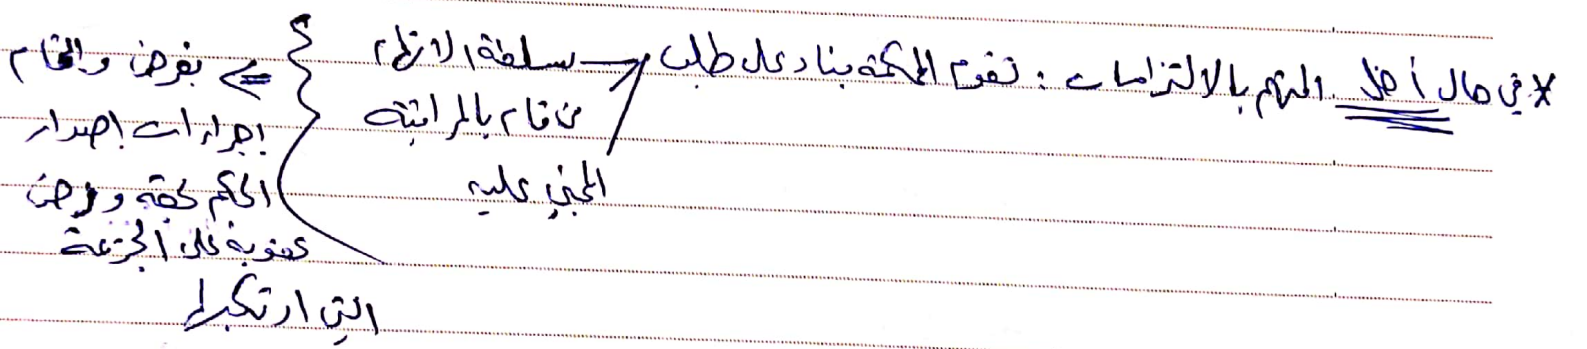 * في حال أخل المتهم بالالتزامات : تقوم المحكمة بناء على طلب
سلطة الاتهام
من قام بالمراقبة
المجني عليه
بفرض واتخام
إجراءات إصدار
الحكم بحقه وفرض
عقوبة على الجريمة
التي ارتكبها